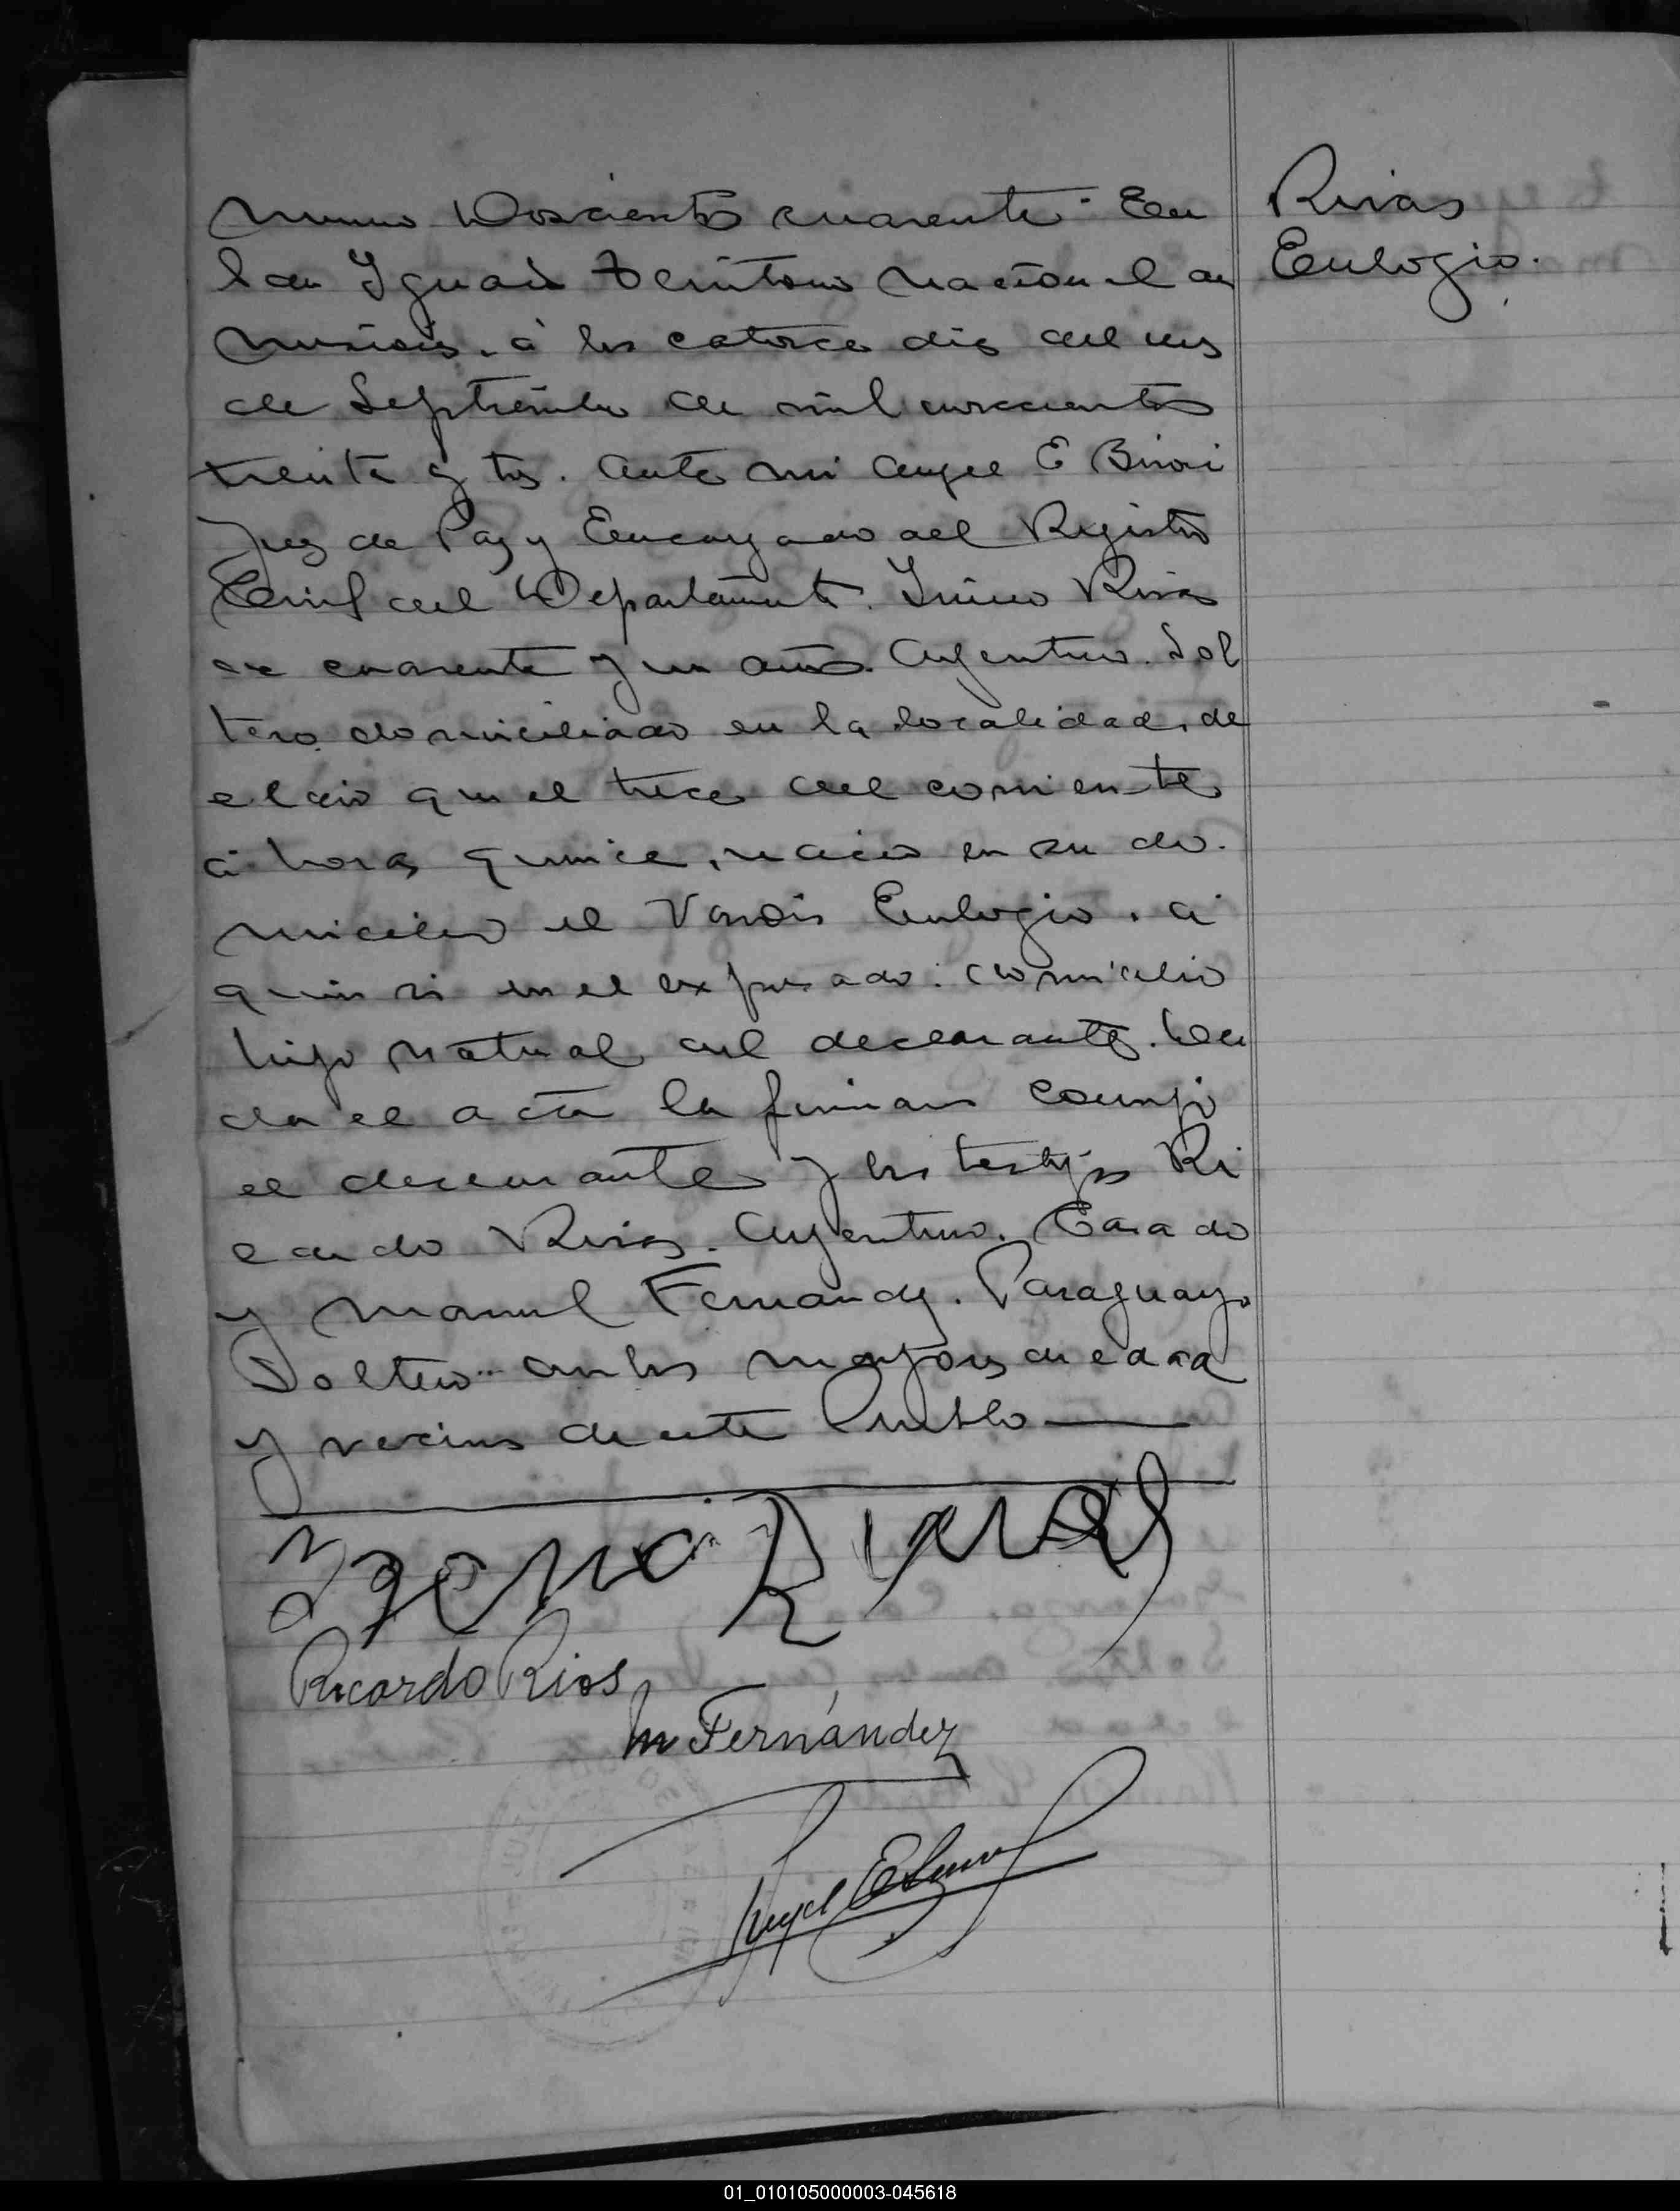 Numero Doscientos cuarenta. En
San Ignacio Territorio Nacional de
Misiones. a los catorce dias del mes
de Septiembre de mil novecientos
treinta y tres. Ante mi Angel E
Juez de Paz y Encargado del Registro
Civil del Departamento. Rivas
de cuarenta y un años. Argentino. Sol
tero domiciliado en la localidad, de
claró que el trece del corriente
a horas quince, nació en su do-
micilio el Varón Eulogio. a
quien vi en el expresado domicilio
hijo natural del declarante. Leí
da el acta la firman conmigo
el declarante y los testigos Ri
cardo Rios. Argentino. Casado
y Manuel Fernandez. Paraguayo
Soltero. ambos mayores de edad
y vecinos de este Pueblo
Rivas
Ricardo Rios
M Fernández
Angel E
Rivas
Eulogio.
01_010105000003-045618